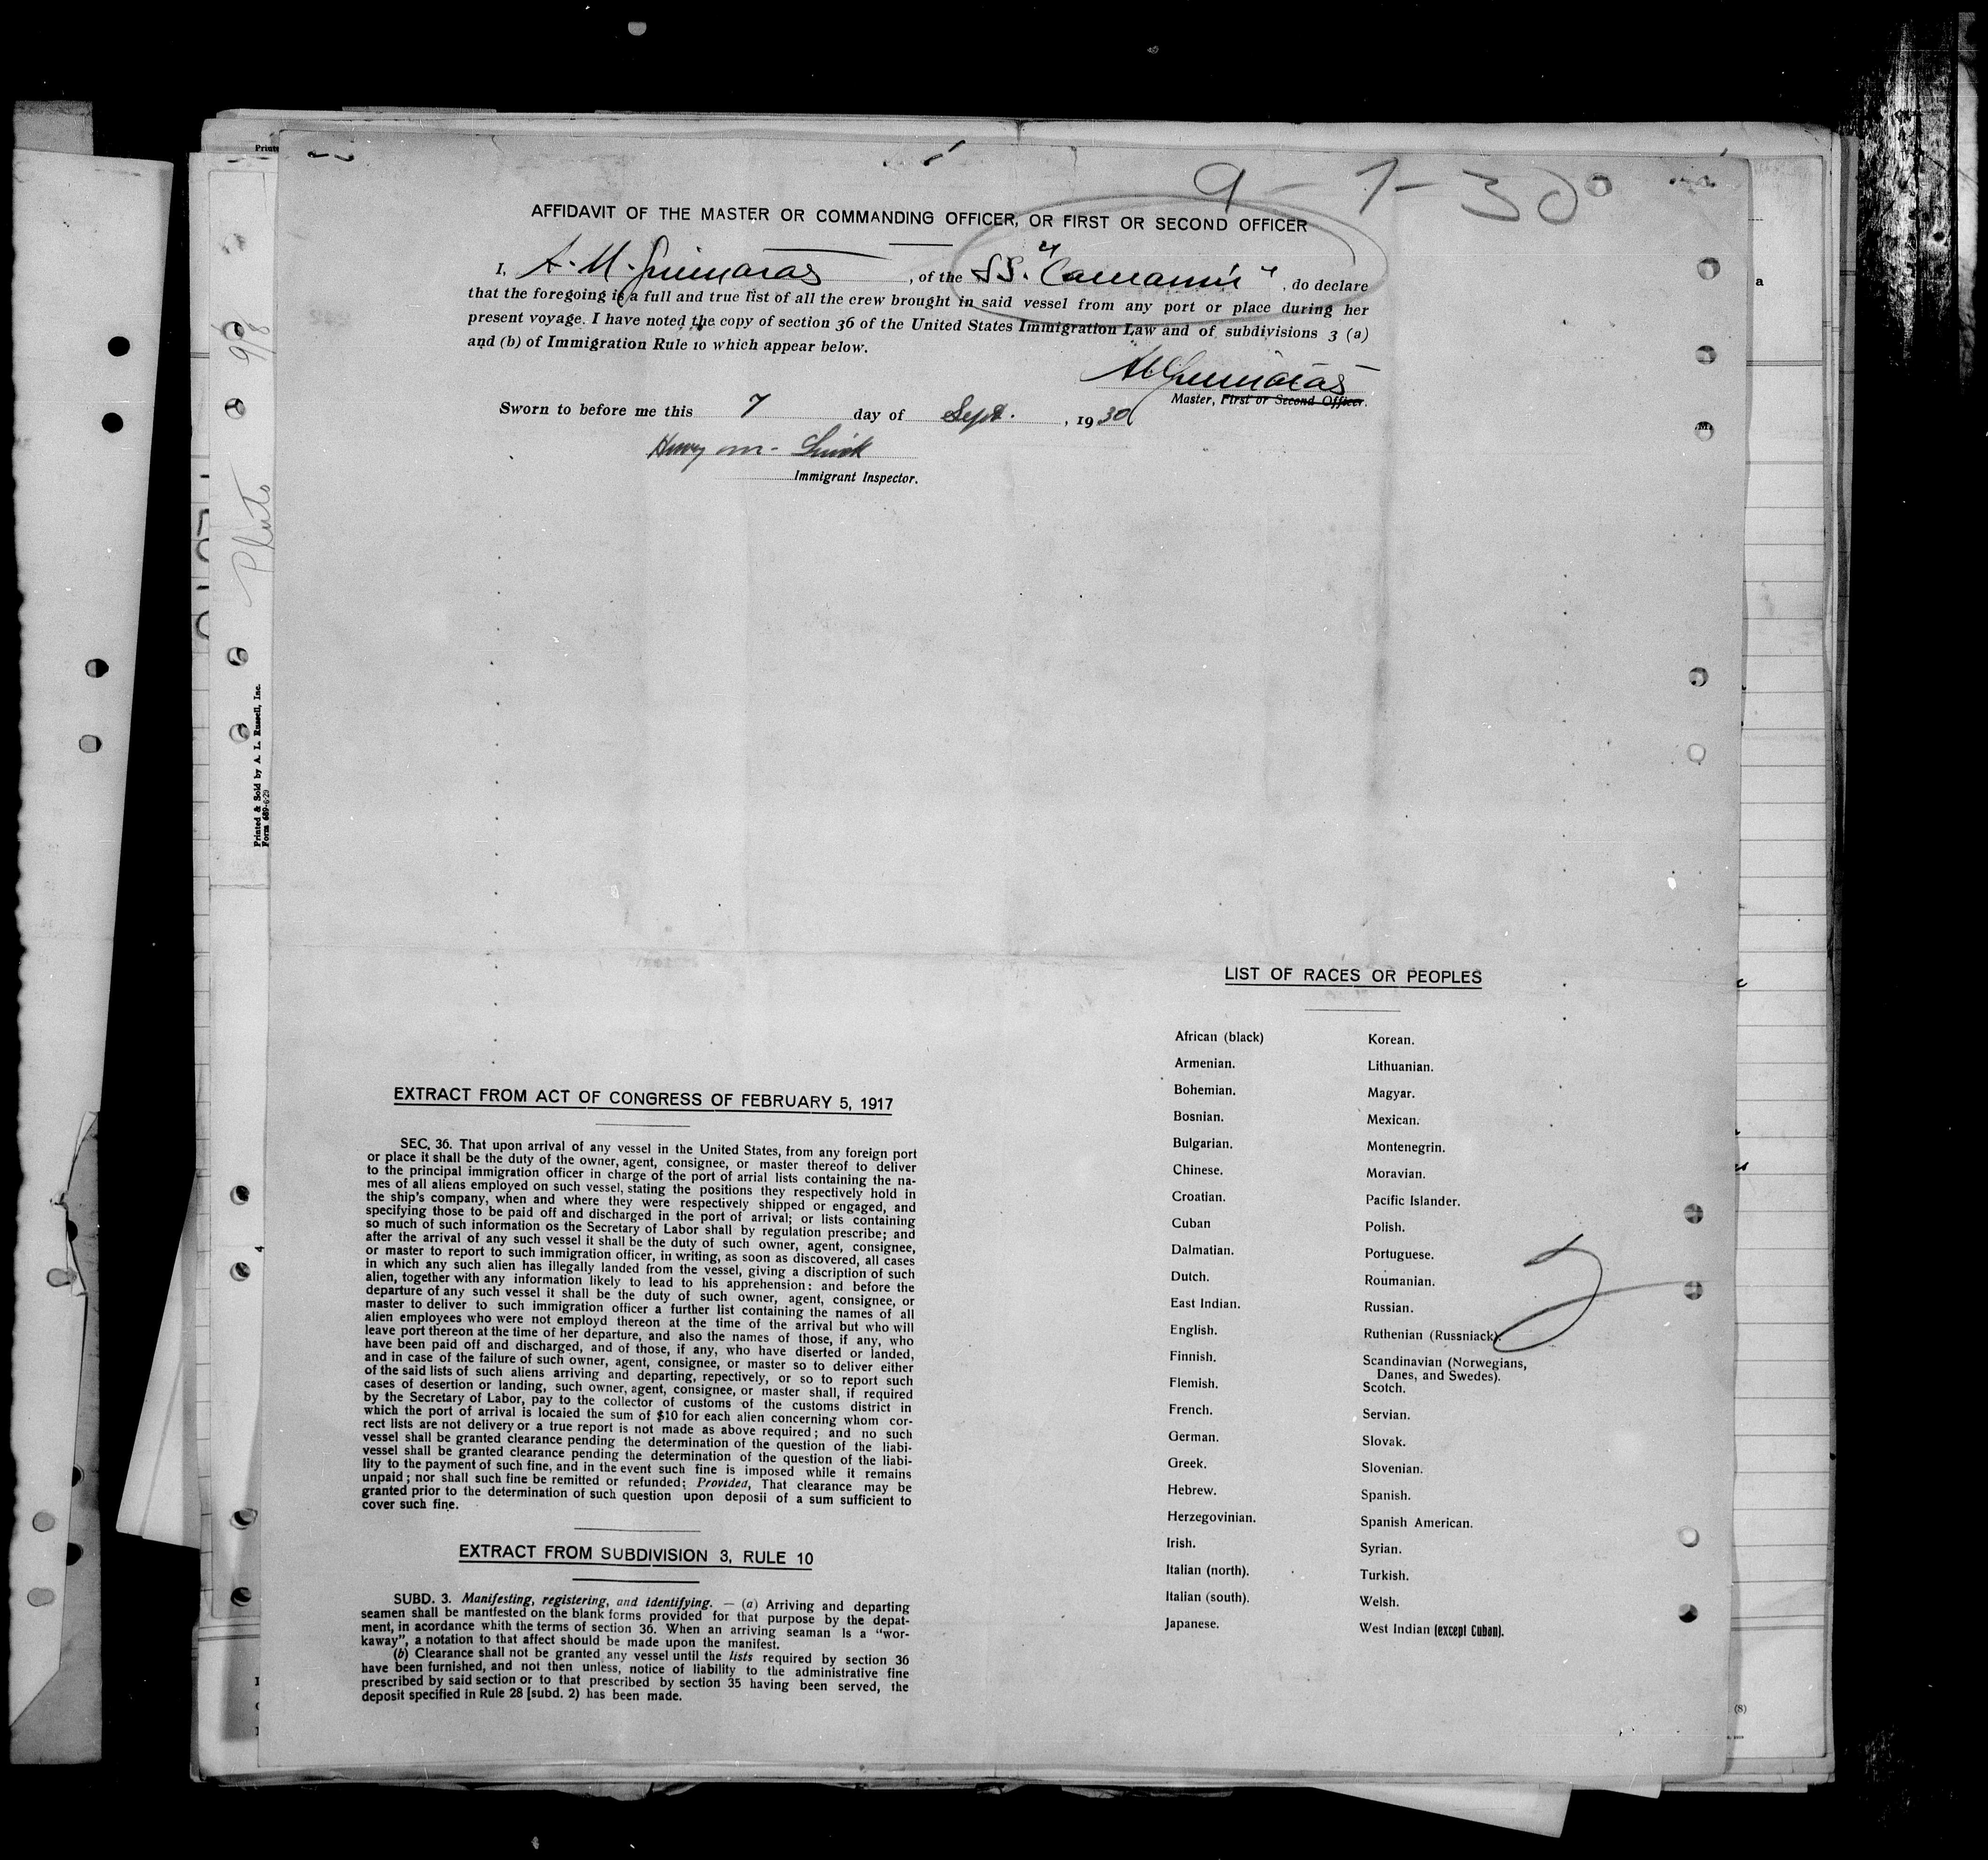 9-7-30
AFFIDAVIT OF THE MASTER OR COMMANDING OFFICER, OR FIRST OR SECOND OFFICER
I, A. M. Guimarães, of the SS. "Camamú", do declare
that the foregoing is a full and true list of all the crew brought in said vessel from any port or place during her
present voyage. I have noted the copy of section 36 of the United States Immigration Law and of subdivisions 3 (a)
and (b) of Immigration Rule 10 which appear below.
AMGuimarães
Master, First or Second Officer.
Sworn to before me this 7 day of Sept., 1930
Immigrant Inspector.
98
Printed & Sold by A. L. Russell, Inc.
Form 689-6/29
4
EXTRACT FROM ACT OF CONGRESS OF FEBRUARY 5, 1917
SEC. 36. That upon arrival of any vessel in the United States, from any foreign port
or place it shall be the duty of the owner, agent, consignee, or master thereof to deliver
to the principal immigration officer in charge of the port of arrial lists containing the na-
mes of all aliens employed on such vessel, stating the positions they respectively hold in
the ship's company, when and where they were respectively shipped or engaged, and
specifying those to be paid off and discharged in the port of arrival; or lists containing
so much of such information os the Secretary of Labor shall by regulation prescribe; and
after the arrival of any such vessel it shall be the duty of such owner, agent, consignee,
or master to report to such immigration officer, in writing, as soon as discovered, all cases
in which any such alien has illegally landed from the vessel, giving a discription of such
alien, together with any information likely to lead to his apprehension: and before the
departure of any such vessel it shall be the duty of such owner, agent, consignee, or
master to deliver to such immigration officer a further list containing the names of all
alien employees who were not employd thereon at the time of the arrival but who will
leave port thereon at the time of her departure, and also the names of those, if any, who
have been paid off and discharged, and of those, if any, who have diserted or landed,
and in case of the failure of such owner, agent, consignee, or master so to deliver either
of the said lists of such aliens arriving and departing, repectively, or so to report such
cases of desertion or landing, such owner, agent, consignee, or master shall, if required
by the Secretary of Labor, pay to the collector of customs of the customs district in
which the port of arrival is locaied the sum of $10 for each alien concerning whom cor-
rect lists are not delivery or a true report is not made as above required; and no such
vessel shall be granted clearance pending the determination of the question of the liabi-
vessel shall be granted clearance pending the determination of the question of the liabi-
lity to the payment of such fine, and in the event such fine is imposed while it remains
unpaid; nor shall such fine be remitted or refunded; Provided, That clearance may be
granted prior to the determination of such question upon deposii of a sum sufficient to
cover such fine.
EXTRACT FROM SUBDIVISION 3, RULE 10
SUBD. 3. Manifesting, registering, and identifying. — (a) Arriving and departing
seamen shall be mantfested on the blank forms provided for that purpose by the depat-
ment, in acordance whith the terms of section 36. When an arriving seaman Is a "wor-
kaway", a notation to that affect should be made upon the manifest.
(b) Clearance shall not be granted any vessel until the lists required by section 36
have been furnished, and not then unless, notice of liability to the administrative fine
prescribed by said section or to that prescribed by section 35 having been served, the
deposit specified in Rule 28 [subd. 2) has been made.
LIST OF RACES OR PEOPLES
African (black)
Armenian.
Bohemian.
Bosnian.
Bulgarian.
Chinese.
Croatian.
Cuban
Dalmatian.
Dutch.
East Indian.
English.
Finnish.
Flemish.
French.
German.
Greek.
Hebrew.
Herzegovinian.
Irish.
Italian (north).
Italian (south).
Japanese.
Korean.
Lithuanian.
Magyar.
Mexican.
Montenegrin.
Moravian.
Pacific Islander.
Polish.
Portuguese.
Roumanian.
Russian.
Ruthenian (Russniack).
Scandinavian (Norwegians,
Danes, and Swedes).
Scotch.
Servian.
Slovak.
Slovenian.
Spanish.
Spanish American.
Syrian.
Turkish.
Welsh.
West Indian (except Cuban).
2
(8)